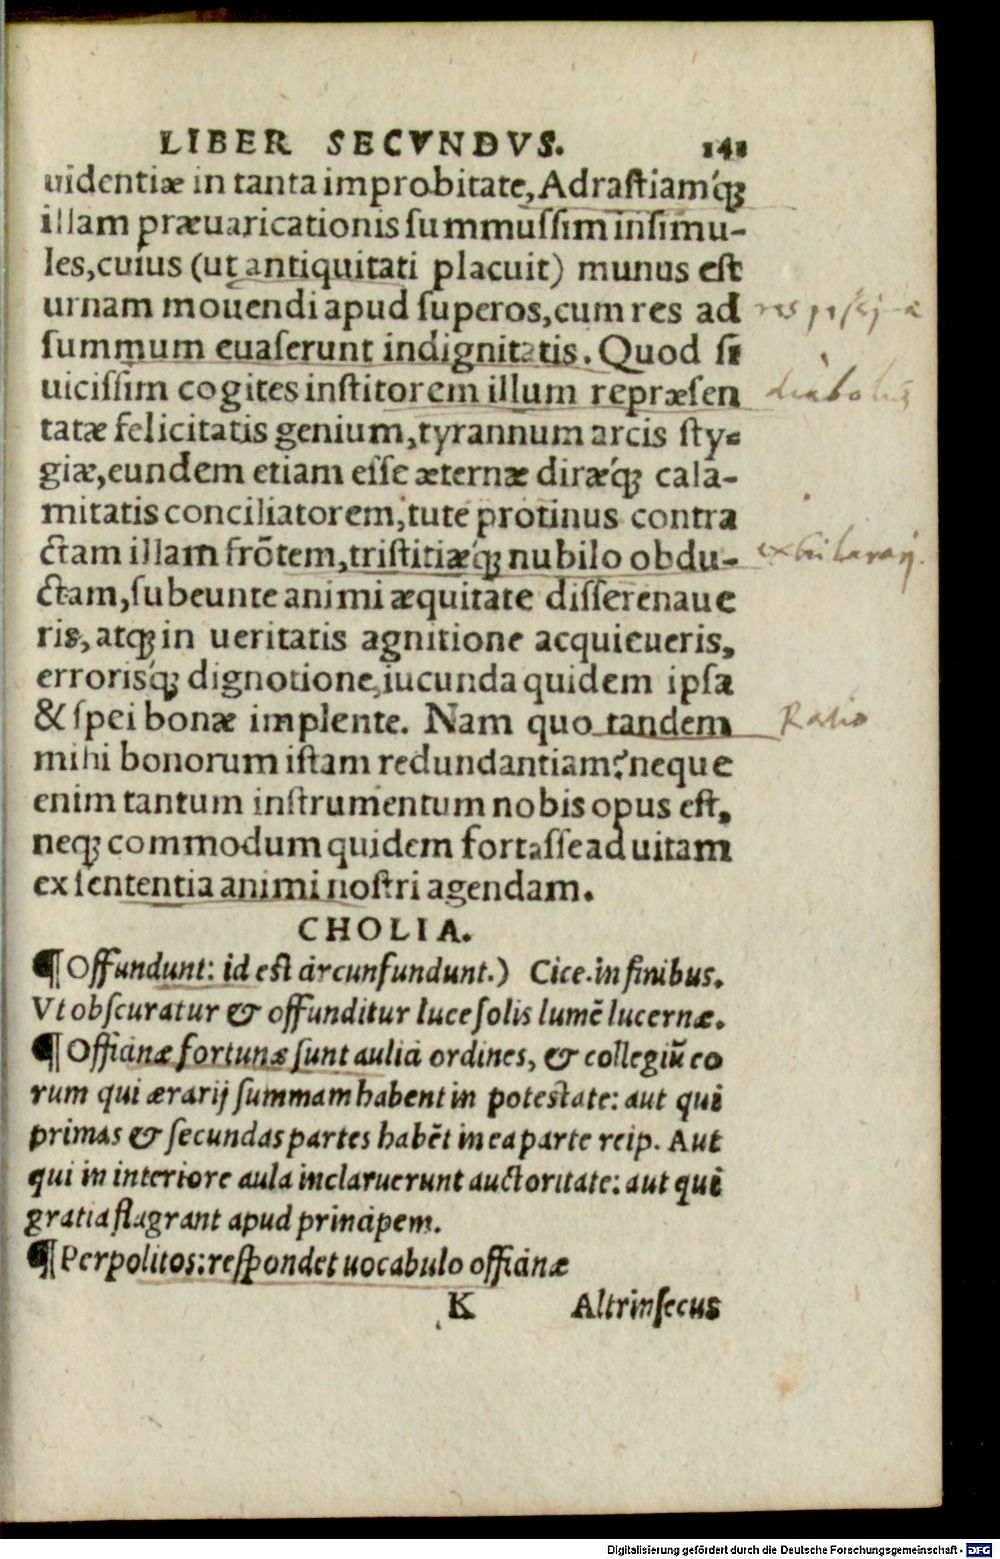 LIBER SECVNDVS. 141
uidentiæ in tanta improbitate, Adrastiamq́ꝫ
illam præuaricationis summussim insimu-
les, cuius (ut antiquitati placuit) munus est
urnam mouendi apud superos, cum res ad
summum euaserunt indignitatis. Quod si
uicissim cogites institorem illum repræsen
diabolus
tatæ felicitatis genium, tyrannum arcis sty-
giæ, eundem etiam esse æternæ diræq́ꝫ cala-
mitatis conciliatorem, tute protinus contra
ctam illam frõtem, tristitiæq́ꝫ nubilo obdu-
ctam, subeunte animi æquitate disserenaue
ris, atqꝫ in ueritatis agnitione acquieueris,
errorisq́ꝫ dignotione, iucunda quidem ipsa
& spei bonæ implente. Nam quo tandem
Ratio
mihi bonorum istam redundantiam? neque
enim tantum instrumentum nobis opus est,
neqꝫ commodum quidem fortasse ad uitam
ex sententia animi nostri agendam.
CHOLIA.
¶ Offundunt: id est circunfundunt.) Cice. in finibus.
Vt obscuratur & offunditur luce solis lumẽ lucernæ.
¶ Officinæ fortunæ sunt aulici ordines, & collegiũ eo
rum qui ærarij summam habent in potestate: aut qui
primas & secundas partes habẽt in ea parte reip. Aut
qui in interiore aula inclaruerunt auctoritate: aut qui
gratia flagrant apud principem.
¶ Perpolitos: respondet uocabulo officinæ
K Altrinsecus
Digitalisierung gefördert durch die Deutsche Forschungsgemeinschaft - DFG